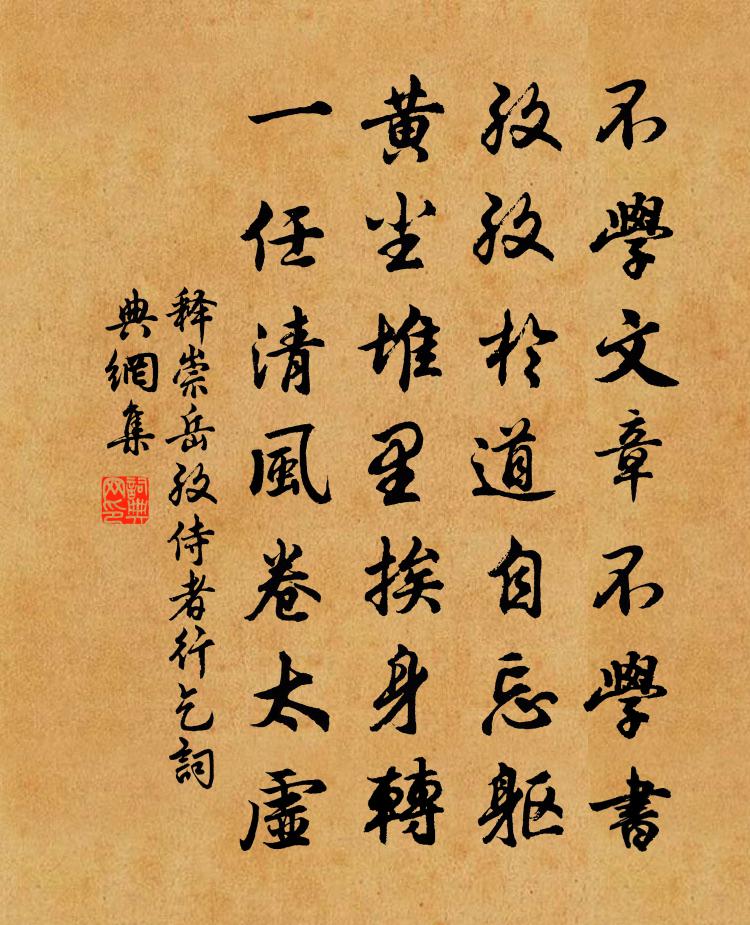 不學文章不學書
孜孜於道自忘軀
黃尘堆里挨身轉
一任清風卷太虛
释崇岳孜侍者行乞詞
典網集
詞典
网印